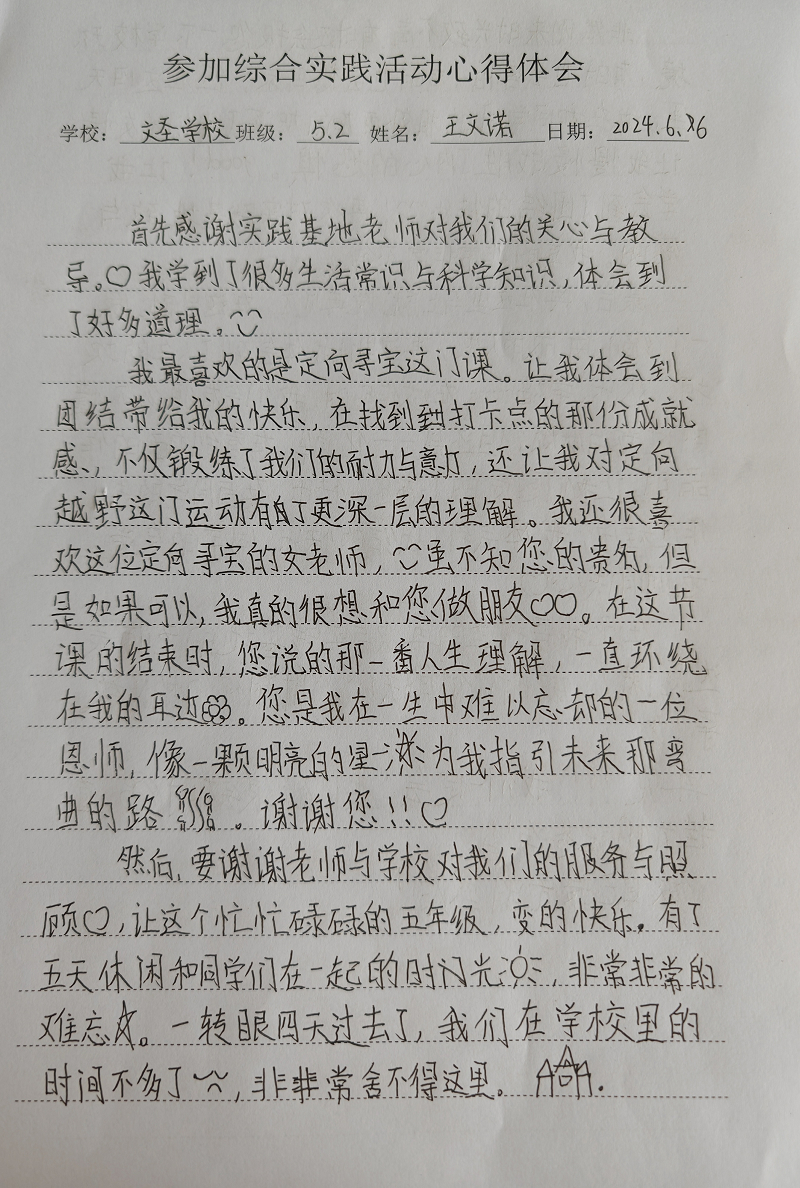 参加综合实践活动心得体会
学校：文圣学校 班级：5.2 姓名：王文诺 日期：2024.6.16
首先感谢实践基地老师对我们的关心与教
导。♡我学到了很多生活常识与科学知识，体会到
了好多道理。
我最喜欢的是定向寻宝这门课。让我体会到
团结带给我的快乐，在找到打卡点的那份成就
感、，不仅锻练了我们的耐力与意力，还让我对定向
越野这门运动有的了更深一层的理解。我还很喜
欢这位定向寻宝的女老师，虽不知您的贵名，但
是如果可以，我真的很想和您做朋友♡♡。在这节
课的结束时，您说的那一番人生理解，一直环绕
在我的耳边。您是我在一生中难以忘却的一位
恩师，像一颗明亮的星为我指引未来那弯
曲的路。谢谢您！！♡
然后，要谢谢老师与学校对我们的服务与照
顾♡，让这个忙忙碌碌的五年级，变的快乐。有了
五天休闲和同学们在一起的时闪光，非常非常的
难忘☆。一转眼四天过去了，我们在学校里的
时间不多了，非非常舍不得这里。